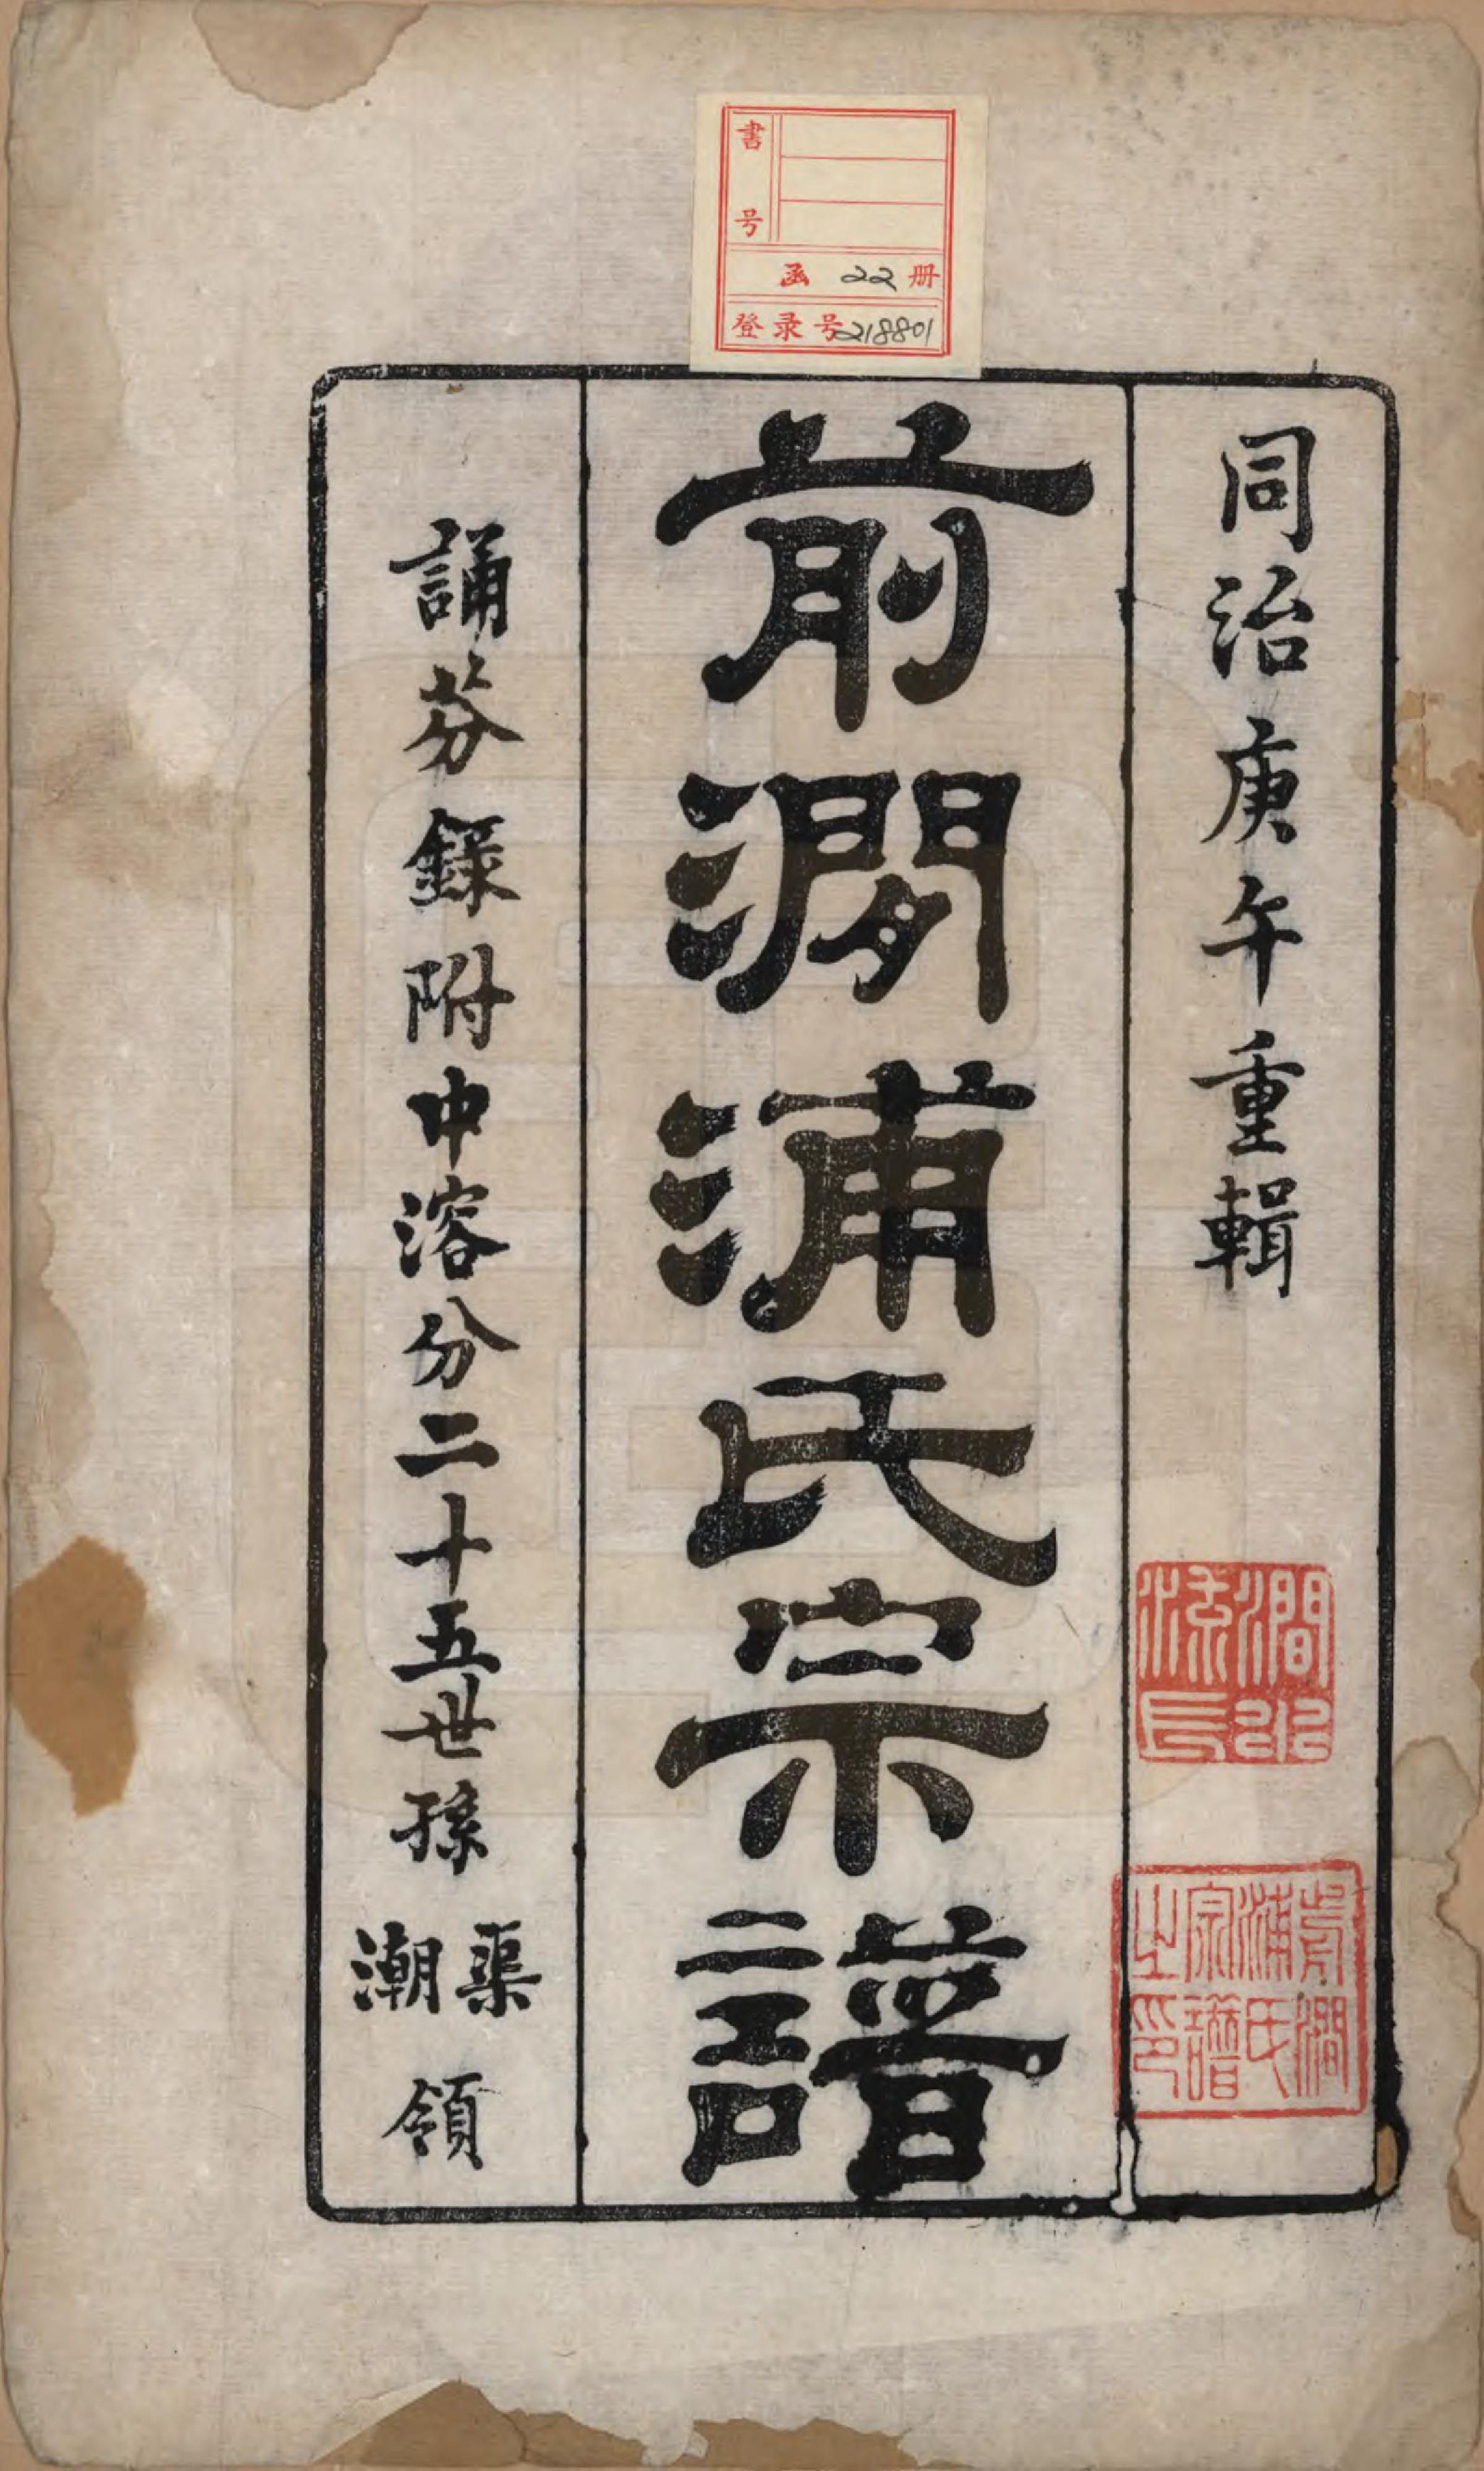 書号
函 22 册
登录号218801
同治庚午重輯
前澗浦氏宗譜
誦芬錄附中溶分二十五世孫渠潮領
前澗浦氏宗譜之印